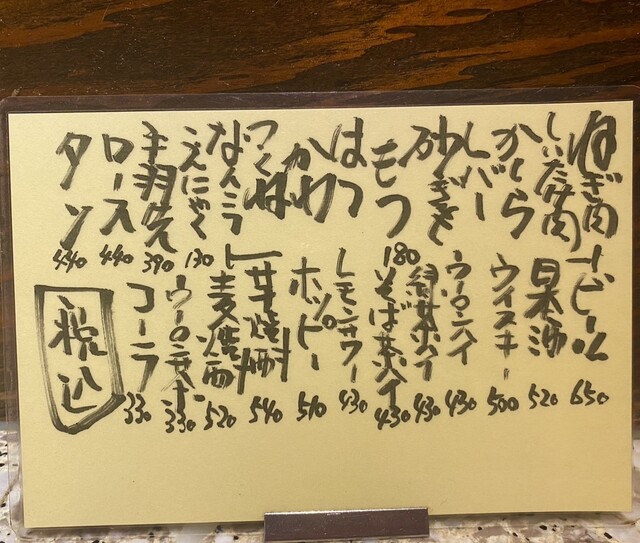 ねぎ肉
しいたけ肉
かしら
レバー
砂ぎも
もつ 180
はつ
かわ
つくね
なんこつ
こんにゃく 130
手羽先 390
ロース 440
タン 440
ビール 650
日本酒 520
ウイスキー 500
ウーロンハイ 430
緑茶ハイ 430
そば茶ハイ 430
レモンサワー 430
ホッピー 510
芋焼酎 540
麦焼酎 520
ウーロン茶 330
コーラ 330
税込